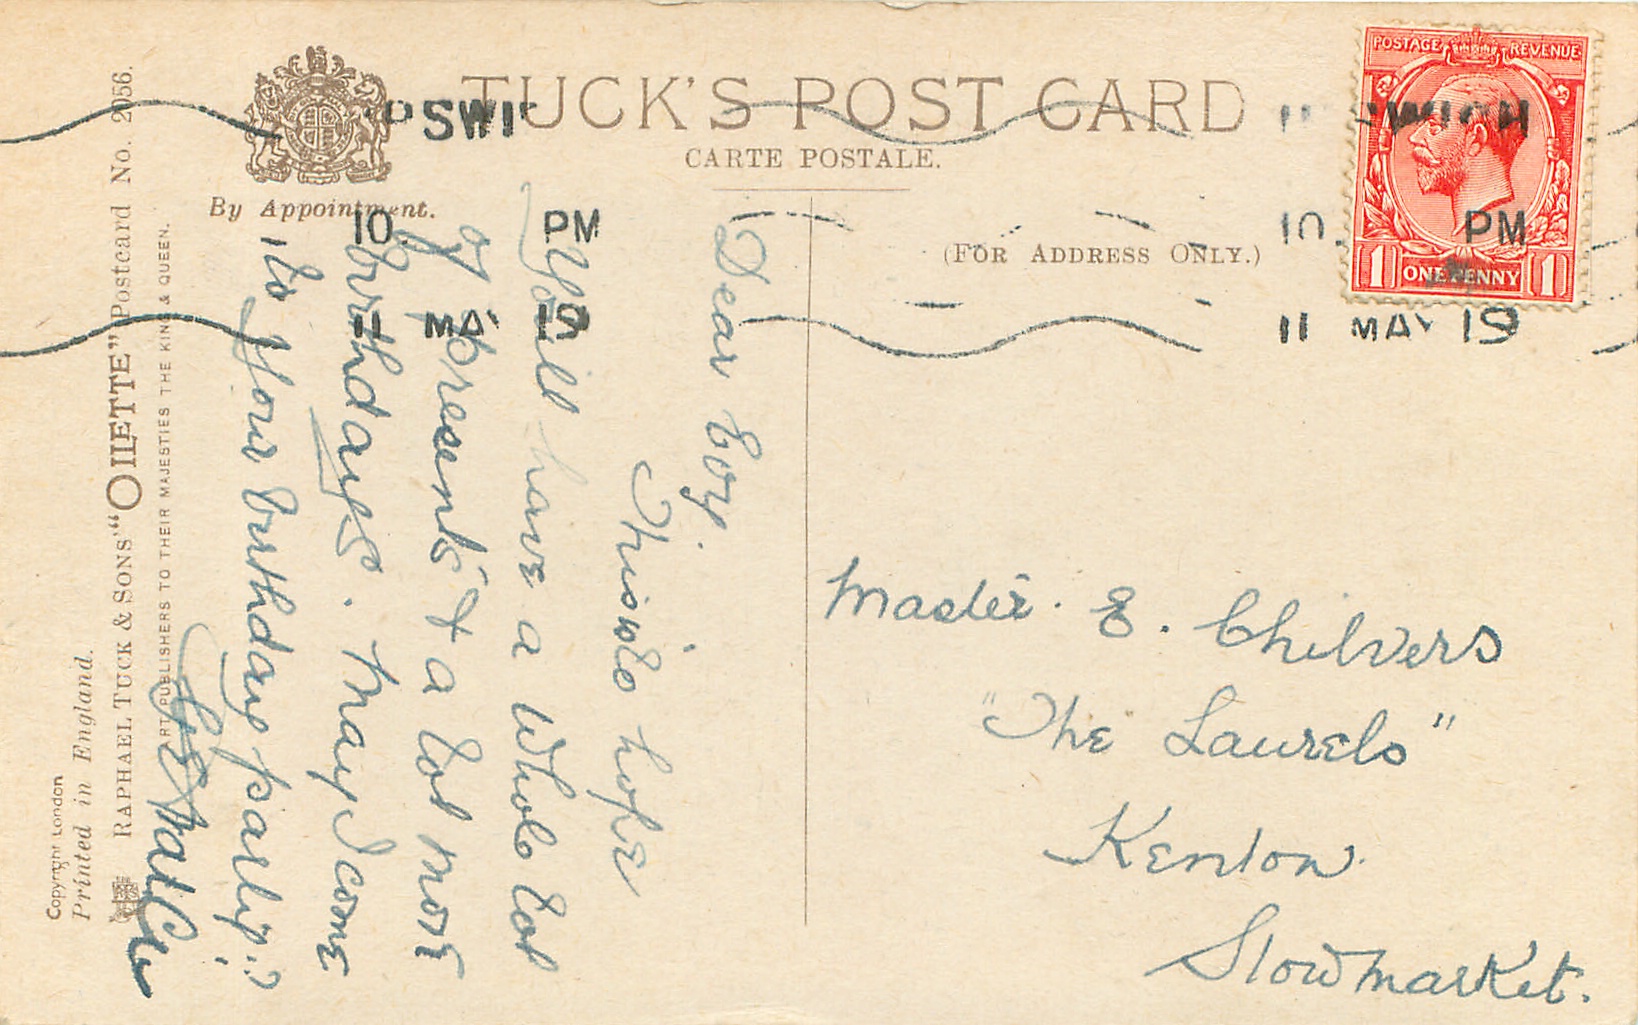 TUCK'S POST CARD
CARTE POSTALE.
By Appointment.
(FOR ADDRESS ONLY.)
POSTAGE REVENUE
1 ONE PENNY 1
10 PM
11 MAY 19
10 PM
11 MAY 19
Copyright London
Printed in England.
RAPHAEL TUCK & SONS' "OILETTE" Postcard No. 2056.
ART PUBLISHERS TO THEIR MAJESTIES THE KING & QUEEN.
Dear boy.
This is to hope
You'll have a whole lot
of presents & a lot more
birthdays. May I come
to your birthday party?
Master. E. Chilvers
"The Laurels"
Kenton
Stowmarket.